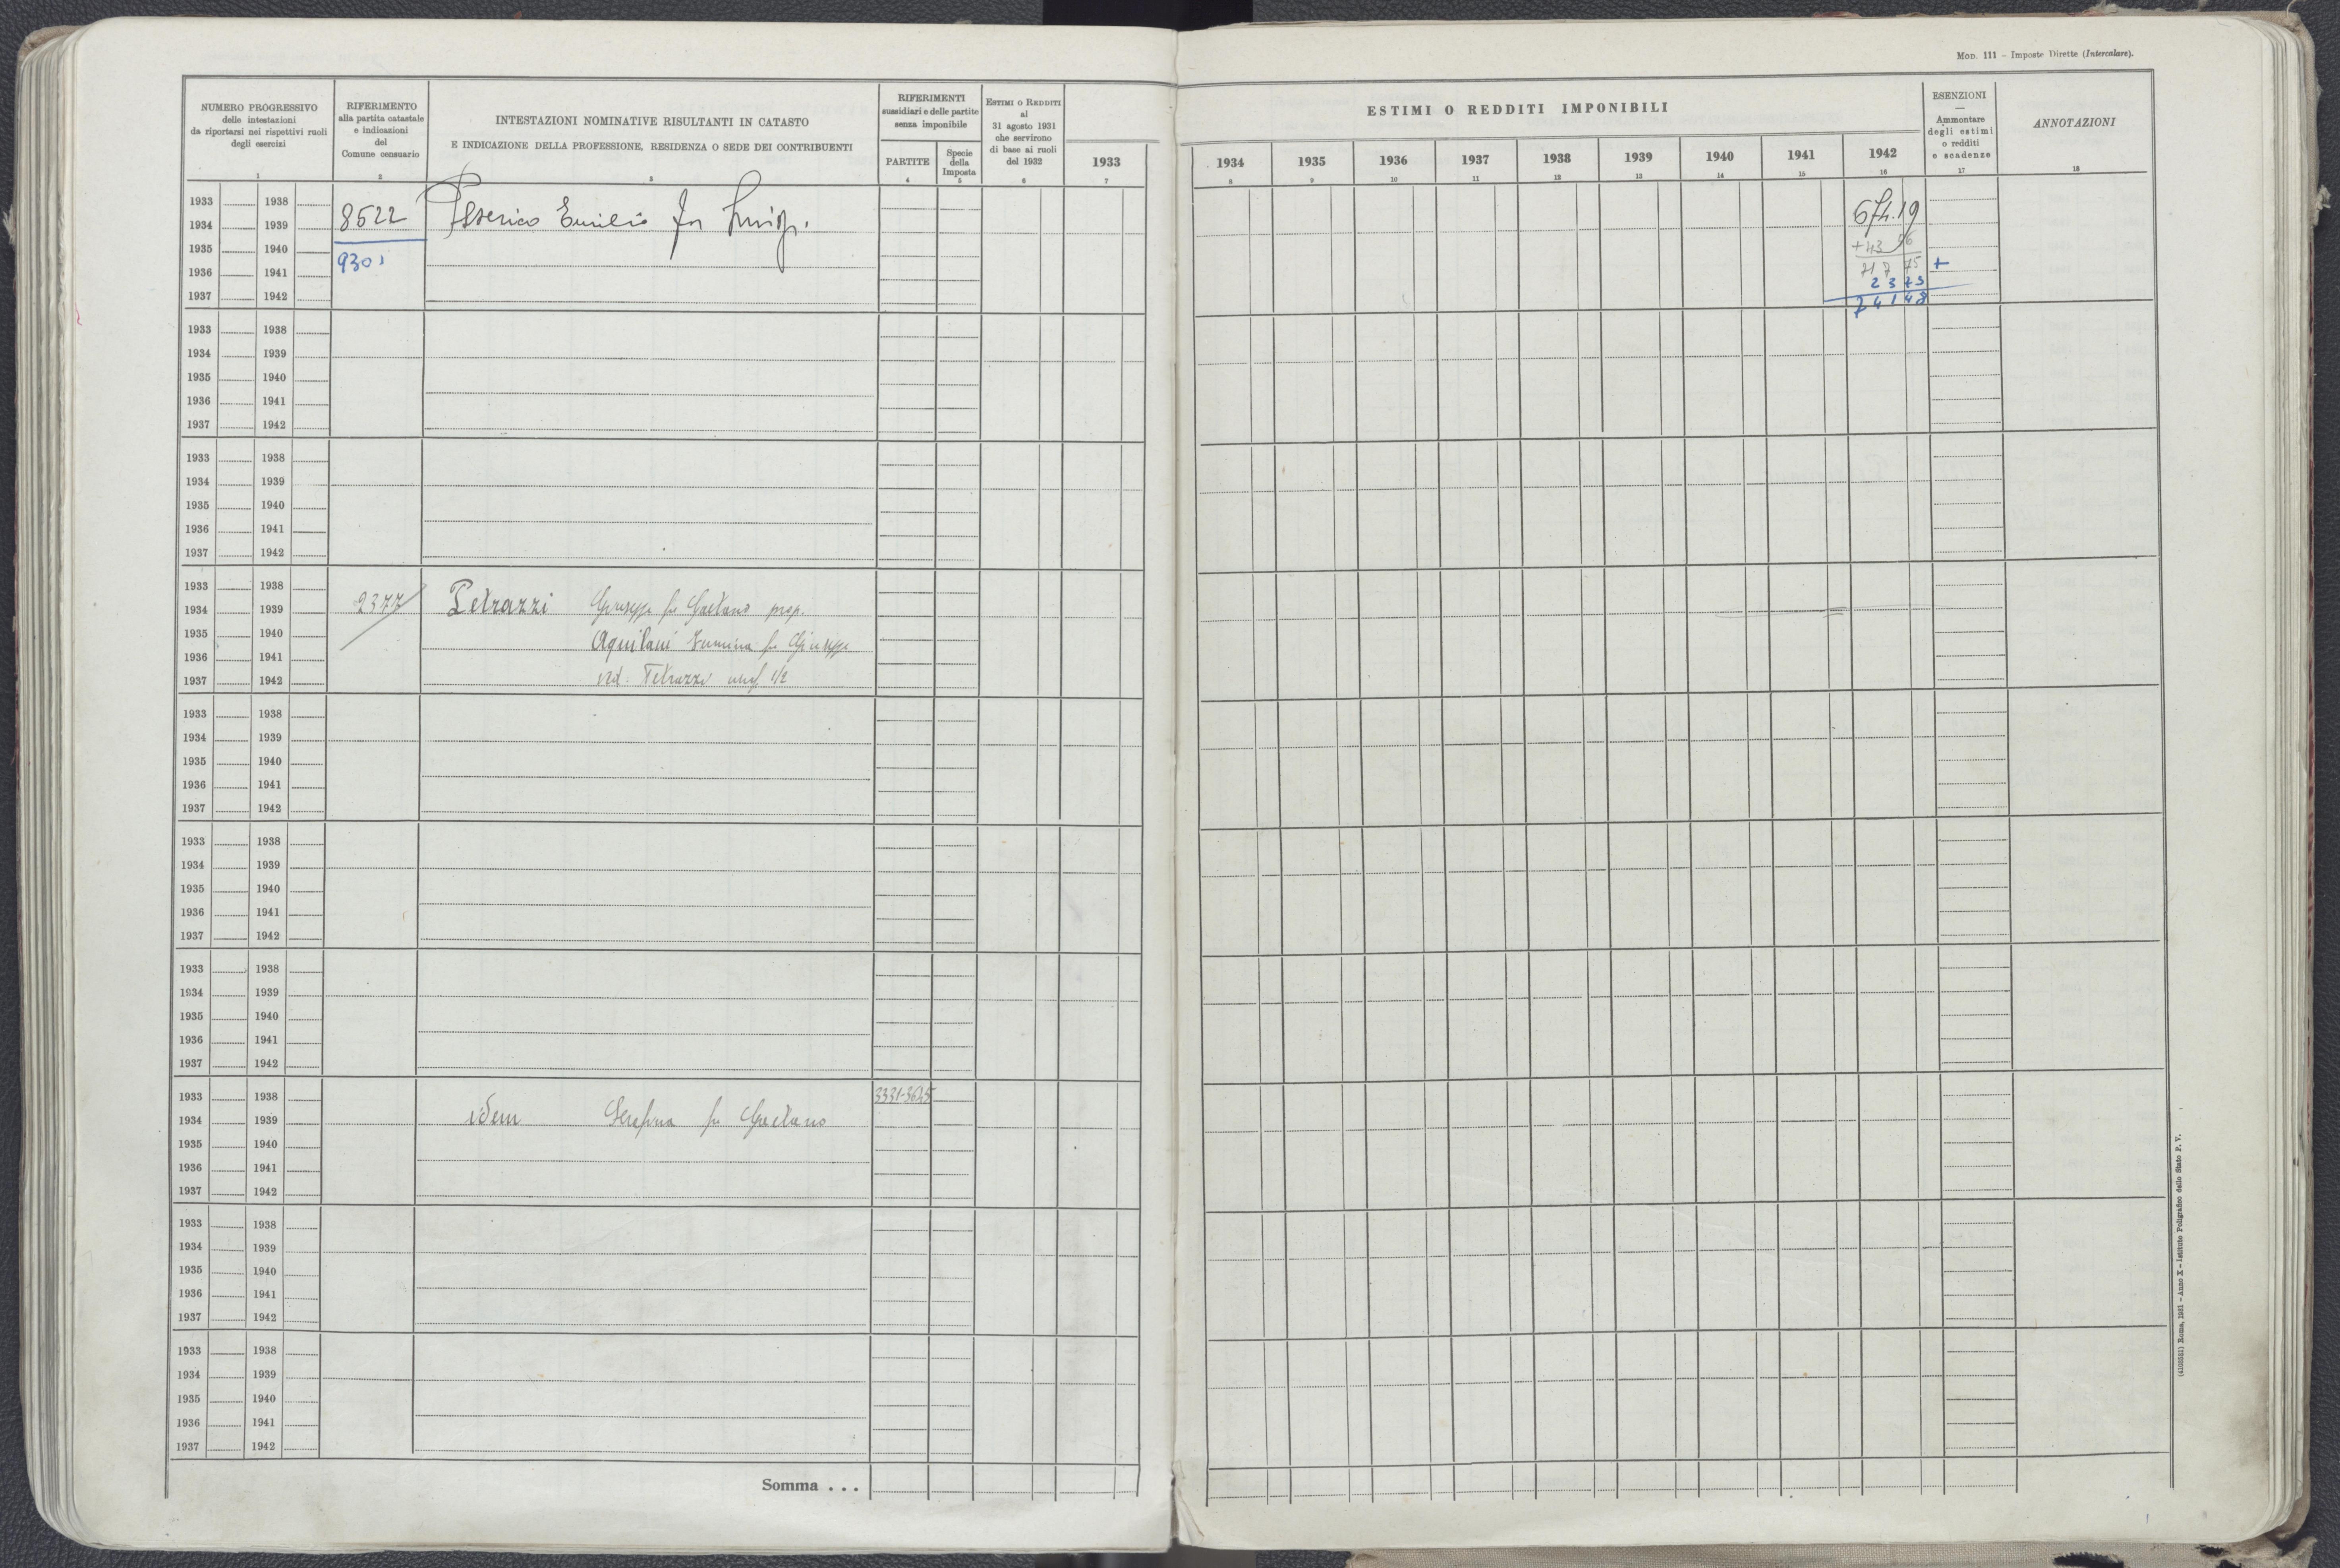 MOD. 111 – Imposte Dirette (Intercalare).
NUMERO PROGRESSIVO
delle intestazioni
da riportarsi nei rispettivi ruoli
degli esercizi
1
RIFERIMENTO
alla partita catastale
e indicazioni
del
Comune censuario
2
INTESTAZIONI NOMINATIVE RISULTANTI IN CATASTO
E INDICAZIONE DELLA PROFESSIONE, RESIDENZA O SEDE DEI CONTRIBUENTI
3
RIFERIMENTI
sussidiari e delle partite
senza imponibile
PARTITE
4
Specie
della
Imposta
5
ESTIMI O REDDITI
al
31 agosto 1931
che servirono
di base ai ruoli
del 1932
6
1933
7
ESTIMI O REDDITI IMPONIBILI
1934 1935 1936 1937 1938 1939 1940 1941 1942
8 9 10 11 12 13 14 15 16
ESENZIONI
—
Ammontare
degli estimi
o redditi
e scadenze
17
ANNOTAZIONI
18
1933 1938
1934 1939 8522 Emilio fu Luigi. 674.19
1935 1940 +43 56
9301
1936 1941 717 75 +
23 73
1937 1942 741 48
1933 1938
1934 1939
1935 1940
1936 1941
1937 1942
1933 1938
1934 1939
1935 1940
1936 1941
1937 1942
1933 1938
1934 1939 2377 Petrazzi Giuseppe fu Gaetano prop.
1935 1940 Aquilani fu Giuseppe
1936 1941
1937 1942 ved. Petrazzi usuf 1/2
1933 1938
1934 1939
1935 1940
1936 1941
1937 1942
1933 1938
1934 1939
1935 1940
1936 1941
1937 1942
1933 1938
1934 1939
1935 1940
1936 1941
1937 1942
1933 1938 3331-3625
1934 1939 idem Serafina fu Gaetano
1935 1940
1936 1941
1937 1942
1933 1938
1934 1939
1935 1940
1936 1941
1937 1942
1933 1938
1934 1939
1935 1940
1936 1941
1937 1942
Somma . . .
Roma, 1931 – Anno X – Istituto Poligrafico dello Stato P. V.